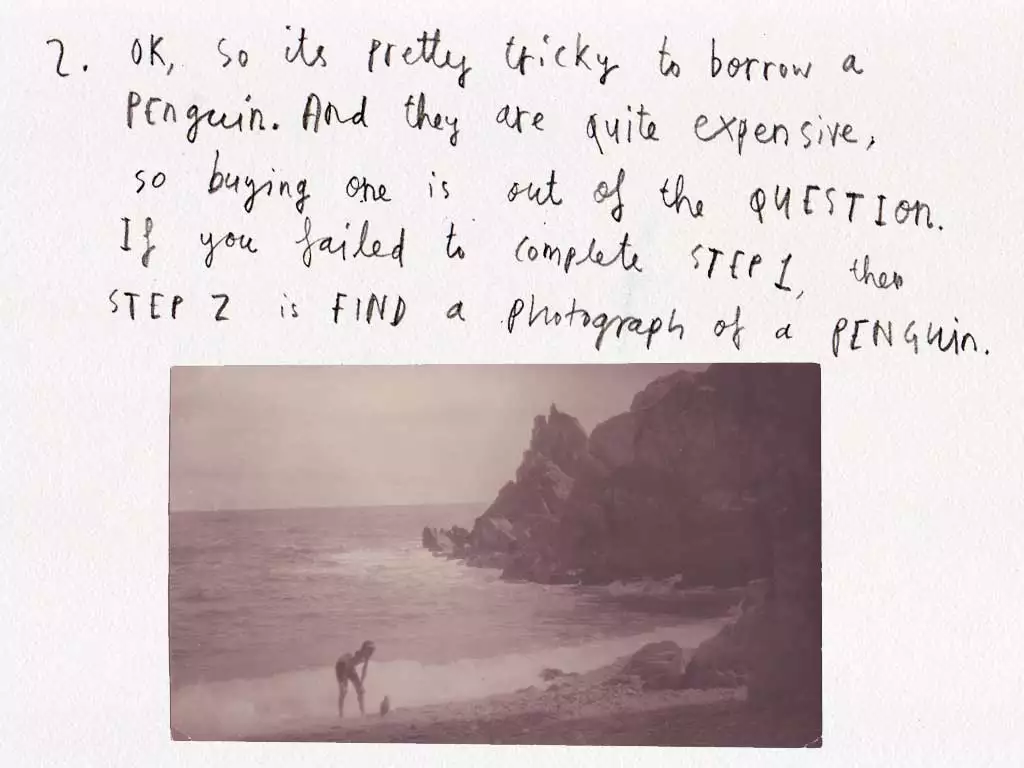 2. OK, so its pretty tricky to borrow a
PENguin. And they are quite expensive,
so buying one is out of the QUESTIOn.
If you failed to complete STEP 1, then
STEP 2 is FIND a photograph of a PENGuin.